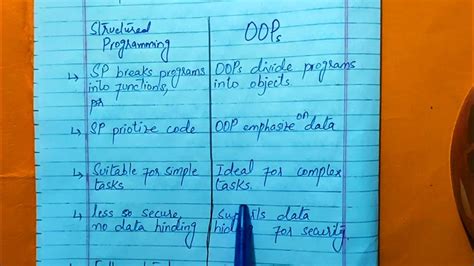 Structured
Programming
OOPs
↳ SP breaks programs
into functions,
pr
OOPs divide programs
into objects.
↳ SP priotize code
OOP emphasize on data
↳ Suitable for simple
tasks
Ideal for complex
tasks.
↳ less so secure,
no data hinding
data
for security.